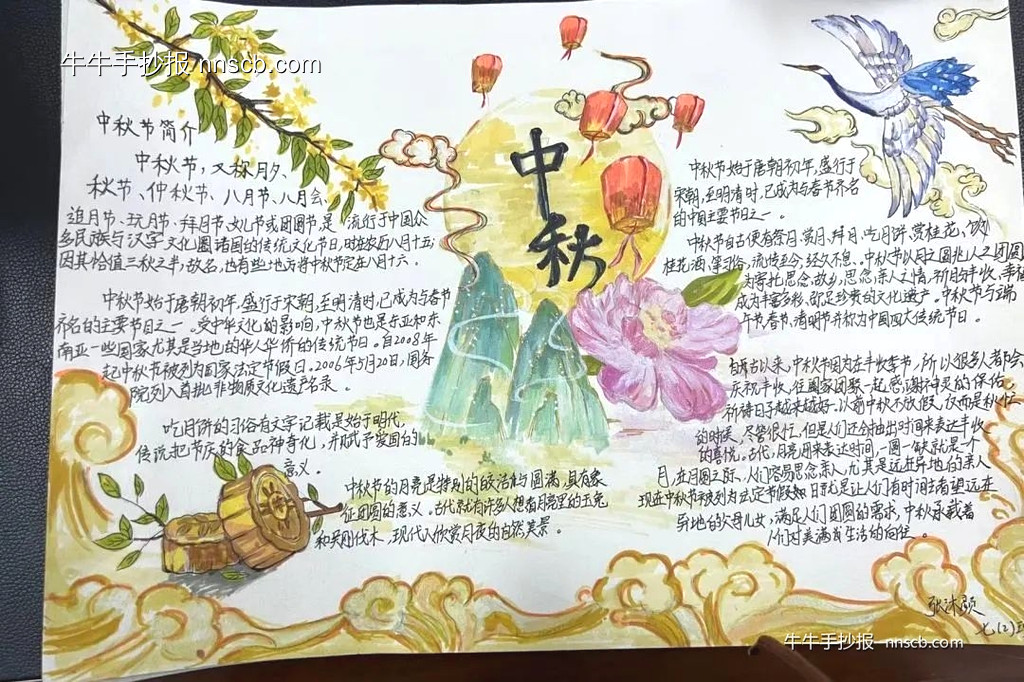 牛牛手抄报 nnscb.com
中秋
中秋节简介
中秋节，又称月夕、
秋节、仲秋节、八月节、八月会、
追月节、玩月节、拜月节、女儿节或团圆节，是流行于中国众
多民族与汉字文化圈诸国的传统文化节日，时在农历八月十五；
因其恰值三秋之半，故名，也有些地方将中秋节定在八月十六。
中秋节始于唐朝初年，盛行于宋朝，至明清时，已成为与春节
齐名的主要节日之一。受中华文化的影响，中秋节也是东亚和东
南亚一些国家尤其是当地的华人华侨的传统节日。自2008年
起中秋节被列为国家法定节假日。2006年5月20日，国务
院列入首批非物质文化遗产名录。
吃月饼的习俗有文字记载是始于明代，
传说把节庆的食品神奇化，并赋予爱国的
意义。
中秋节的月亮是特别的皎洁与圆满，具有象
征团圆的意义。古代就有许多人想着月亮里的玉兔
和吴刚伐木，现代人欣赏月夜的自然美景。
中秋节始于唐朝初年，盛行于
宋朝，至明清时，已成为与春节齐名
的中国主要节日之一。
中秋节自古便有祭月、赏月、拜月、吃月饼、赏桂花、饮
桂花酒等习俗，流传至今，经久不息。中秋节以月之圆兆人之团圆
为寄托思念故乡，思念亲人之情，祈盼丰收、幸福
成为丰富多彩、弥足珍贵的文化遗产。中秋节与端
午节、春节、清明节并称为中国四大传统节日。
自古以来，中秋节因为在丰收季节，所以很多人都会
庆祝丰收，往國家团聚一起，感謝神灵的保佑
祈祷日子越来越好。以前中秋不放假，反而是秋忙
的时候，尽管很忙，但是人们还会抽出时间来表达丰收
的喜悦。古代，月亮用来表达时间，一圆一缺就是一个
月，在月圆之际，人们容易思念亲人，尤其是远在异地的亲人
现在中秋节被列为法定节假日就是让人们有时间去看望远在
异地的父母儿女，满足人们团圆的需求，中秋承载着
人们对美满生活的向往。
张沐颜
七(2)班
牛牛手抄报 nnscb.com